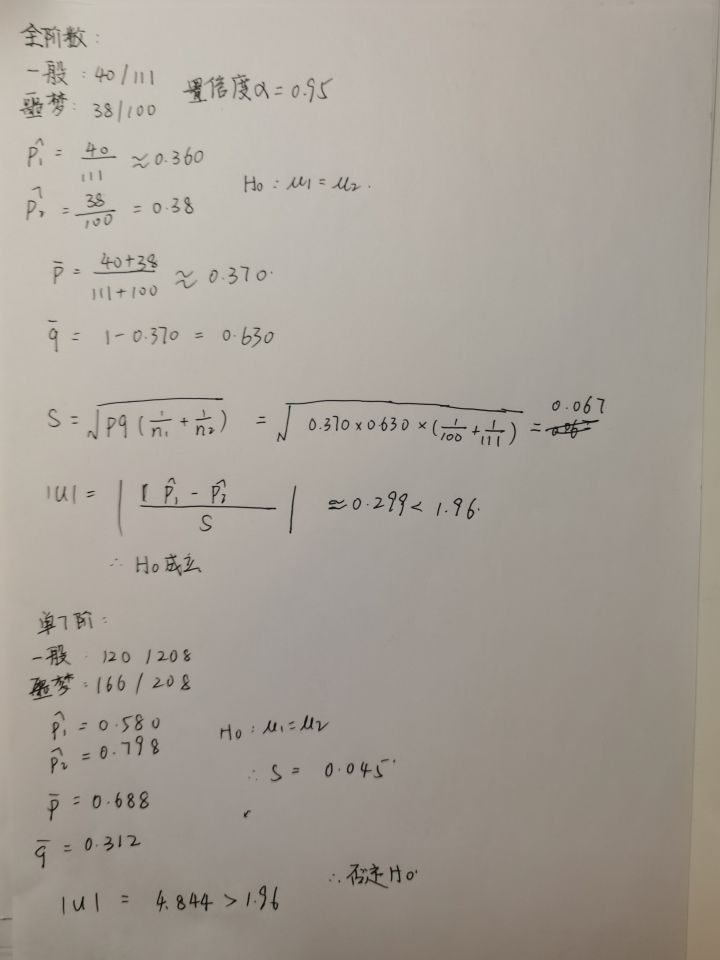 全阶数:
一般:40/111
噩梦:38/100
置信度α=0.95
p̂₁ = 40/111 ≈0.360
H₀:μ₁=μ₂.
p̂₂ = 38/100 = 0.38
p̄ = (40+38)/(111+100) ≈ 0.370.
q̄ = 1-0.370 = 0.630
S = √(pq(1/n₁+1/n₂)) = √(0.370×0.630×(1/100+1/111)) = 0.067
|u| = |(p̂₁-p̂₂)/S| ≈0.299< 1.96.
∴ H₀成立
单7阶:
一般:120/208
噩梦:166/208
p̂₁ = 0.580
H₀:μ₁=μ₂
p̂₂ = 0.798
∴ S = 0.045
p̄ = 0.688
q̄ = 0.312
∴否定H₀.
|u| = 4.844 >1.96